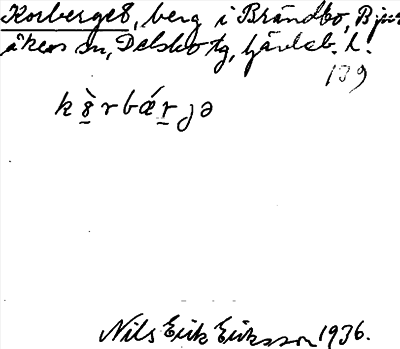 Korberget, berg i Brändbo, Bjur
åkers sn, Delsbo tg, Gävleb. l.
139
k ò̱ r b ǽ ṟ j ə
Nils Erik Eriksson 1936.